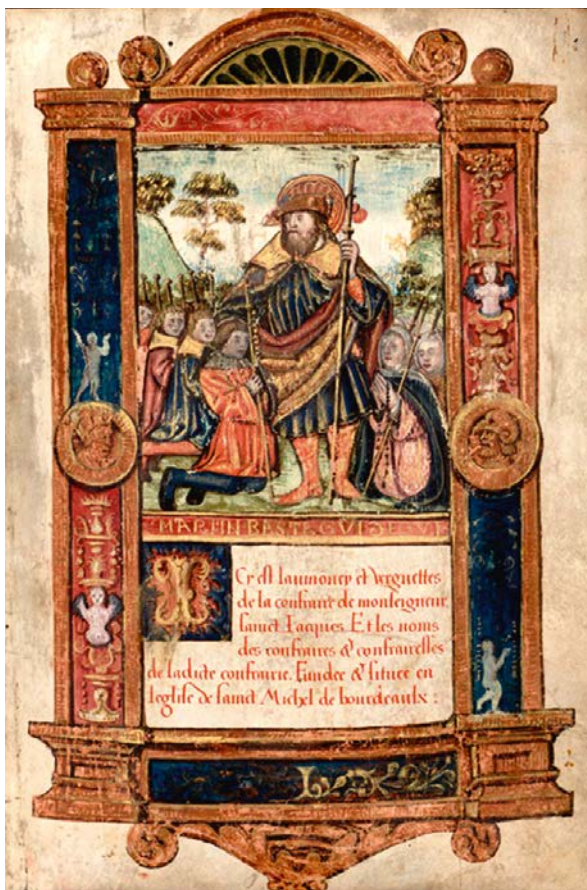 MARTIN
ICy est laumoney et vergnettes
de la confraire de monseigneur
sanct Iacques Et les noms
des confraires & confrairesses
de ladicte confrairie. Fundee & situee en
leglise de sanct Michel de bourdeaulx :